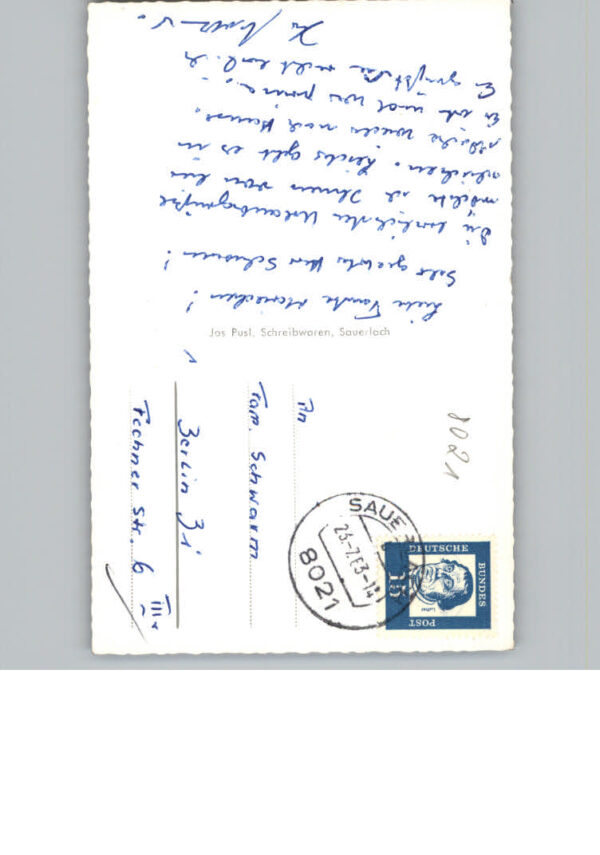 Liebe Tante Mariechen!
Sehr geehrter Herr Schwarm!
Die herzlichsten Urlaubsgrüße
möchte ich Ihnen von hier
schicken. geht es in
wieder nach Hause.
Es ist und war prima.
Es grüßt Sie recht herzlich
Ihr
Jos Pusl, Schreibwaren, Sauerlach
An
Fam. Schwarm
Berlin 31
Fechner Str. 6 III
8021
SAUERLACH
23.-7.63-14
8021
DEUTSCHE
BUNDES
POST
15
Luther